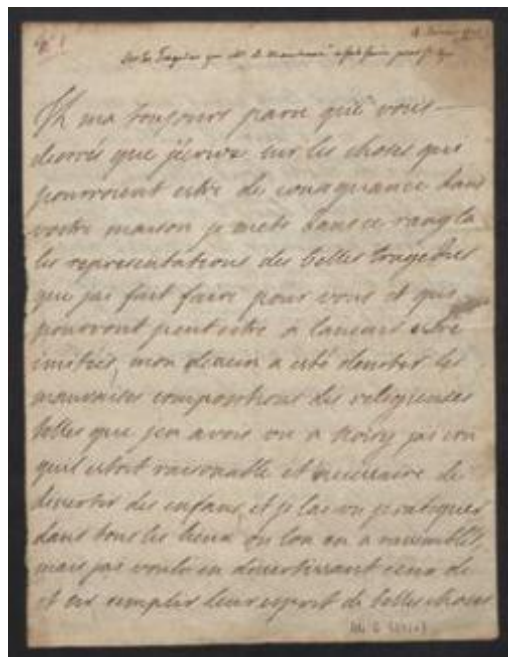 Il ma tousjours paru que vous
desirés que j'ecrive sur les choses qui
pourroient estre de consequance dans
vostre maison je mets dans ce rang la
les representations des belles tragedies
que jai fait faire pour vous et qui
pourront peut estre a lavenir estre
imitées, mon dessein a esté deviter les
mauvaises compositions des religieuses
telles que jen avois vu a Noisy jai cru
quil estoit raisonnable et necessaire de
divertir des enfans et je lai vu pratiquer
dans tous les lieux ou lon en a rassemblés,
mais jai voulu en divertissant ceux de
et en remplir leur esprit de belles choses